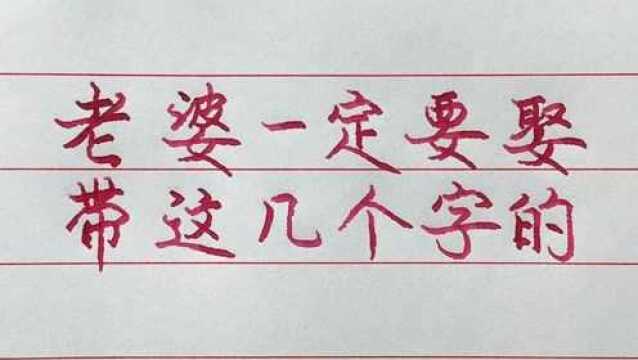 老婆一定要娶
带这几个字的